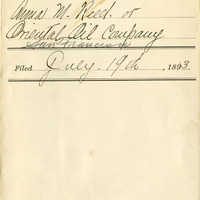 Anna M. Reed. or
Oriental Oil Company
San Francisco
Filed July 19th, 1893.